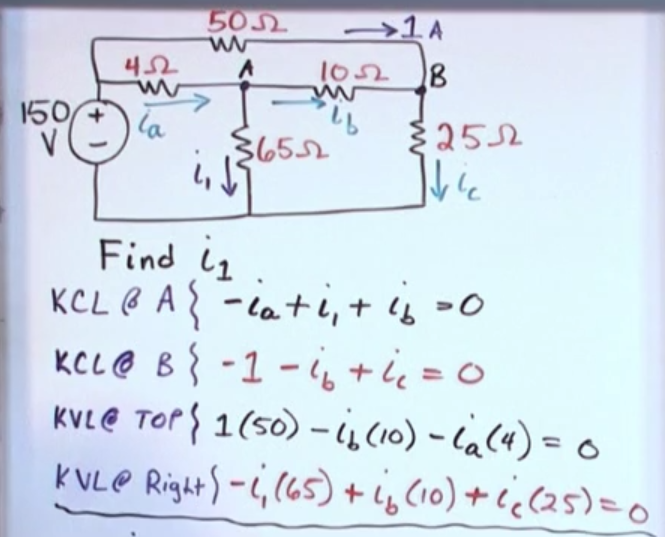 50Ω → 1 A
4Ω A 10Ω B
150 V + − ia ib
65Ω 25Ω
i₁ ↓ ↓ ic
Find i₁
KCL @ A { -ia + i₁ + ib = 0
KCL @ B { -1 - ib + ic = 0
KVL @ TOP { 1(50) - ib(10) - ia(4) = 0
KVL @ Right } -i₁(65) + ib(10) + ic(25) = 0